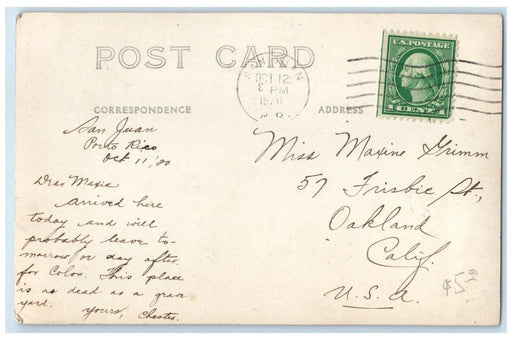 POST CARD
SAN JUAN
OCT 12
8 PM
1920
P.R.
U.S. POSTAGE
1 CENT 1
CORRESPONDENCE
ADDRESS
San Juan
Porto Rico
Oct 11, '20
Dear Maxie
Arrived here
today and will
probably leave to-
morrow or day after
for Colon. This place
is as dead as a grave
yard.
Yours, Chester.
Miss Maxine Grimm
57 Frisbie St,
Oakland
Calif.
U.S.A.
$5.00